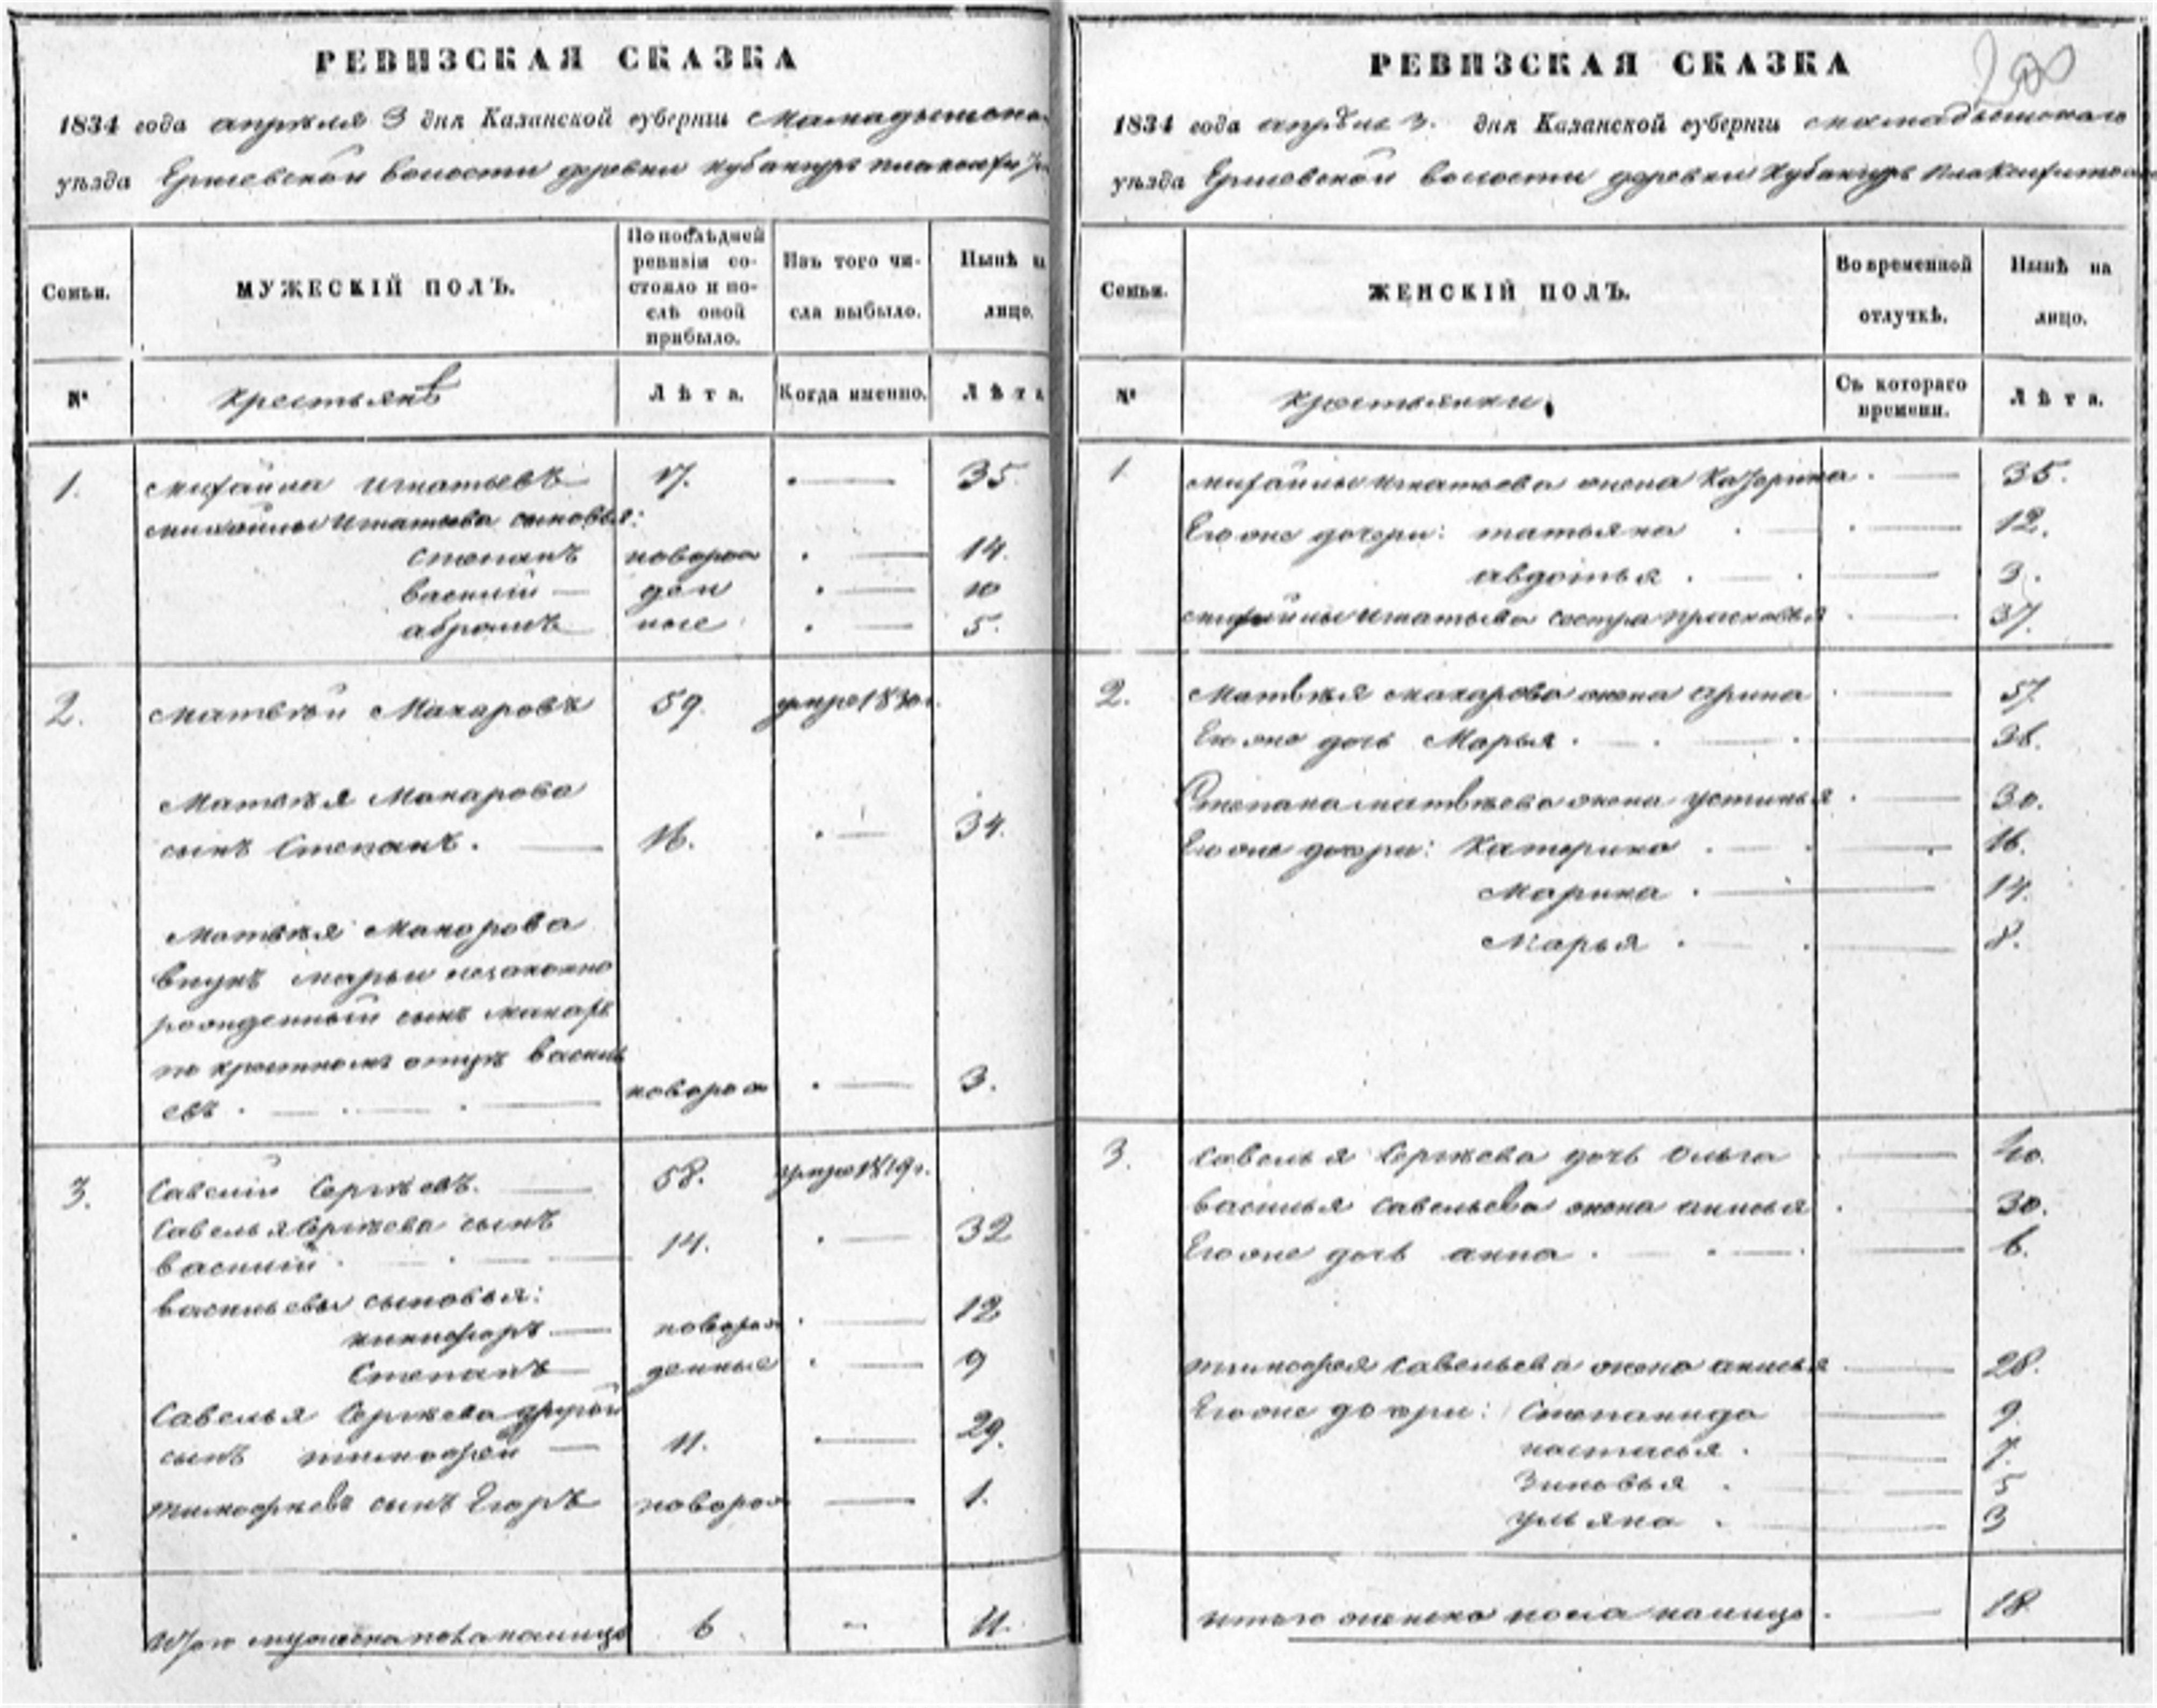 РЕВИЗСКАЯ СКАЗКА
1834 года апрѣля 3 дня Казанской губерніи Мамадышска
уѣзда Ершевской волости деревни Кубанчурѣ
Семьи. МУЖЕСКІЙ ПОЛЪ. По послѣдней ревизіи состояло и послѣ оной прибыло. Изъ того числа выбыло. Нынѣ на лицо.
№ Крестьянѣ Лѣта. Когда именно. Лѣта
1. Михайла Игнатьевъ 17. — 35.
Михайлы Игнатьева сыновья:
Степанъ новорож — 14.
Василій — ден — 10
Абрамъ ные — 5.
2. Матвѣй Макаровъ 59. умре 1830 г.
Матвѣя Макарова
сынъ Степанъ. — 16. — 34.
Матвѣя Макарова
внукъ Марьи незаконно
рожденный сынъ Макаръ
по крестномъ отцѣ Василь
евъ. — новорож — 3.
3. Савелій Сергѣевъ. — 58. умре 1819 г.
Савелья Сергѣева сынъ
Василій 14. — 32
Васильевы сыновья:
Никифоръ — новорож — 12
Степанъ — денные — 9
Савелья Сергѣева другой
сынъ Тимофей — 11. — 29.
Тимофѣевъ сынъ Егоръ новорож — 1.
Итого мужеска пола налицо 6 — 11.
РЕВИЗСКАЯ СКАЗКА
200
1834 года апрѣля 3. дня Казанской губерніи Мамадышскаго
уѣзда Ершевской волости деревни Кубанчурѣ
Семьи. ЖЕНСКІЙ ПОЛЪ. Во временной отлучкѣ. Нынѣ на лицо.
№ Крестьянки. Съ котораго времени. Лѣта.
1 Михайлы Игнатьева жена Катерина. — 35.
Его же дочери: Татьяна — 12.
Авдотья. — 3.
Михайлы Игнатьева сестра Прасковья — 37.
2. Матвѣя Макарова жена Арина — 57.
Его же дочь Марья. — 36.
Степана Матвѣева жена Устинья. — 30.
Его же дочери: Катерина — 16.
Марина. — 14.
Марья. — 8.
3. Савелья Сергѣева дочь Ольга — 40.
Василья Савельева жена Анисья — 30.
Его же дочь Анна. — 6.
Тимофея Савельева жена Анисья — 28.
Его же дочери: Степанида — 9.
Настасья. — 7.
Зиновья. — 5
Ульяна. — 3
Итого женска пола налицо. — 18